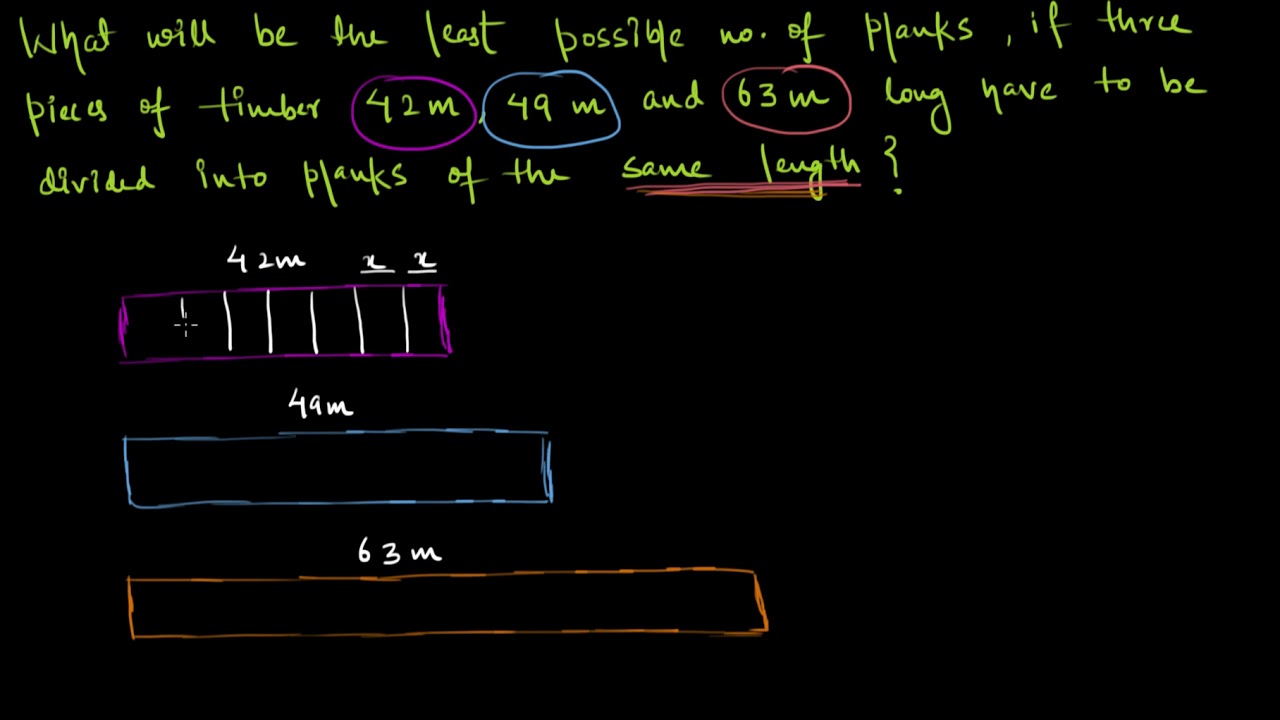 What will be the least possible no. of planks, if three
pieces of timber 42m, 49 m and 63 m long have to be
divided into planks of the same length?
42m x x
49m
63 m